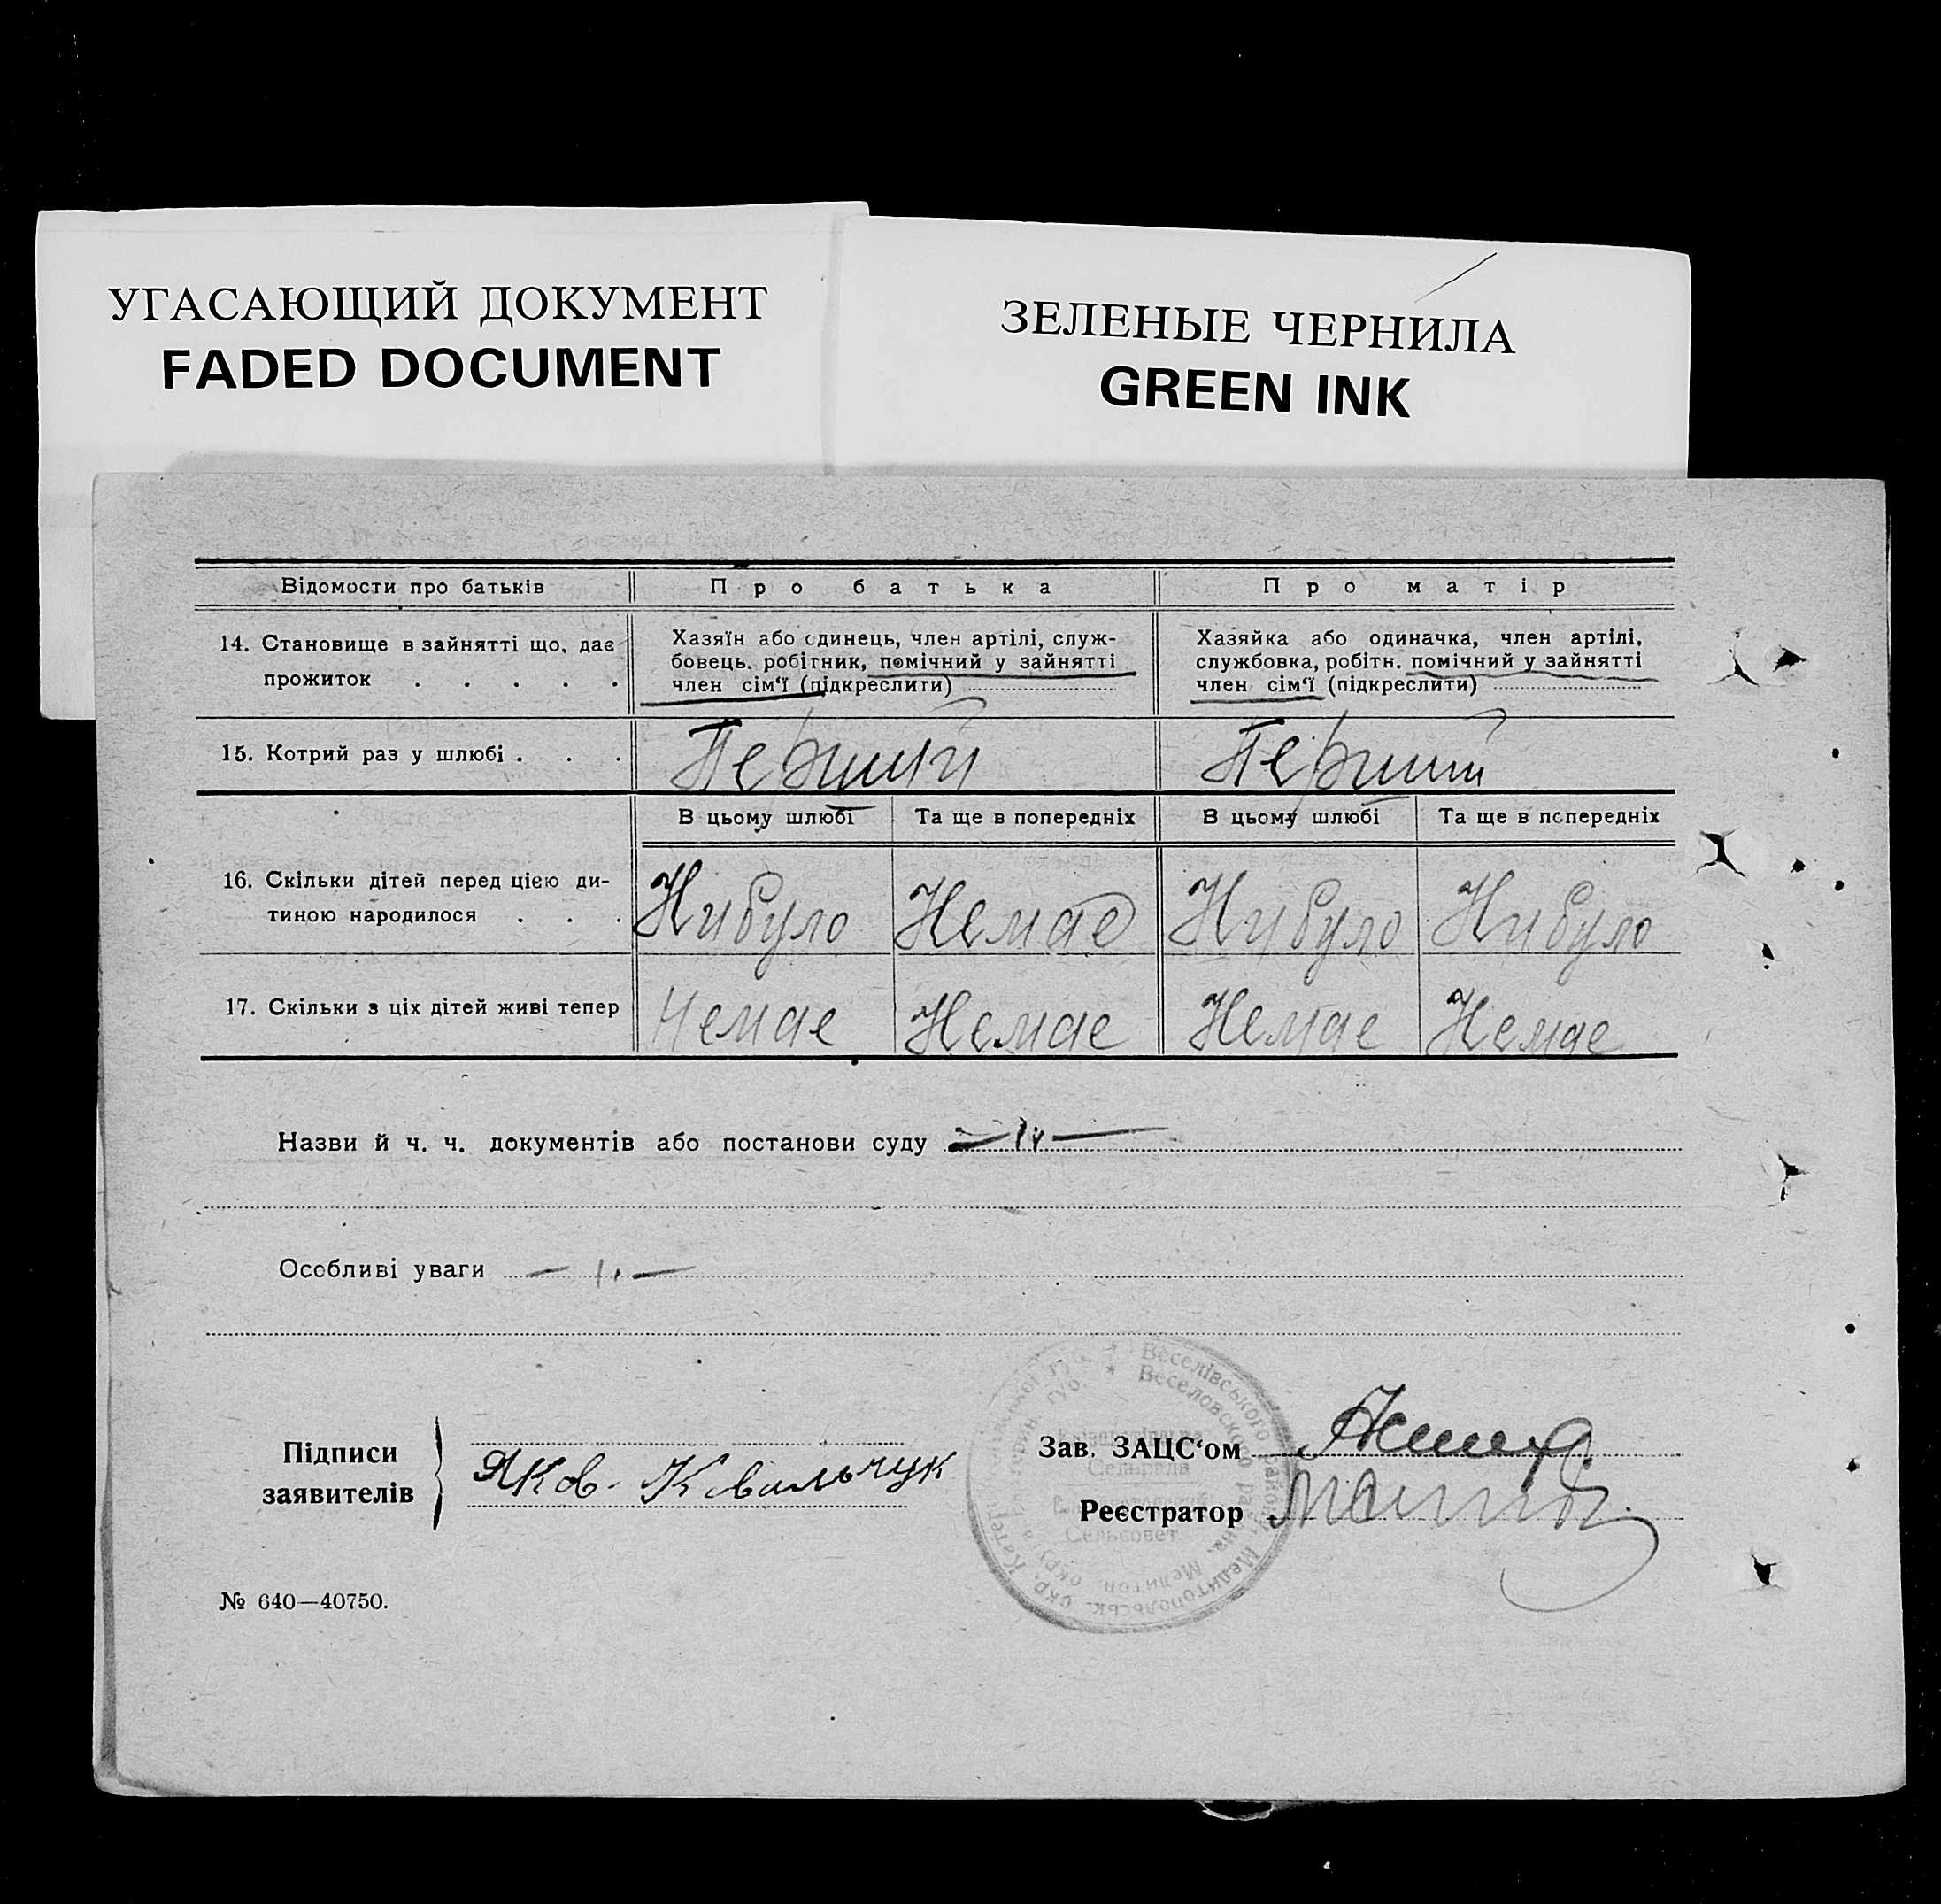 УГАСАЮЩИЙ ДОКУМЕНТ
FADED DOCUMENT
ЗЕЛЕНЫЕ ЧЕРНИЛА
GREEN INK
Відомости про батьків
Про батька
Про матір
14. Становище в зайнятті що, дає
прожиток . . . . .
Хазяїн або одинець, член артілі, служ-
бовець, робітник, помічний у зайнятті
член сім‘ї (підкреслити)
Хазяйка або одиначка, член артілі,
службовка, робітн. помічний у зайнятті
член сім‘ї (підкреслити)
15. Котрий раз у шлюбі . . .
Перший
Перший
В цьому шлюбі
Та ще в попередніх
В цьому шлюбі
Та ще в попередніх
16. Скільки дітей перед цією ди-
тиною народилося . . .
Нибуло
Немає
Нибуло
Нибуло
17. Скільки з ціх дітей живі тепер
Немае
Немае
Немае
Немае
Назви й ч. ч. документів або постанови суду — „ —
Особливі уваги — „ —
Підписи
заявителів
Яков. Ковальчук
Зав. ЗАЦС‘ом
Реєстратор
Веселівського району Мелитопольськ. окр. Катер
Веселовского района Мелитоп. округа
Сельрада
Сельсовет
№ 640—40750.